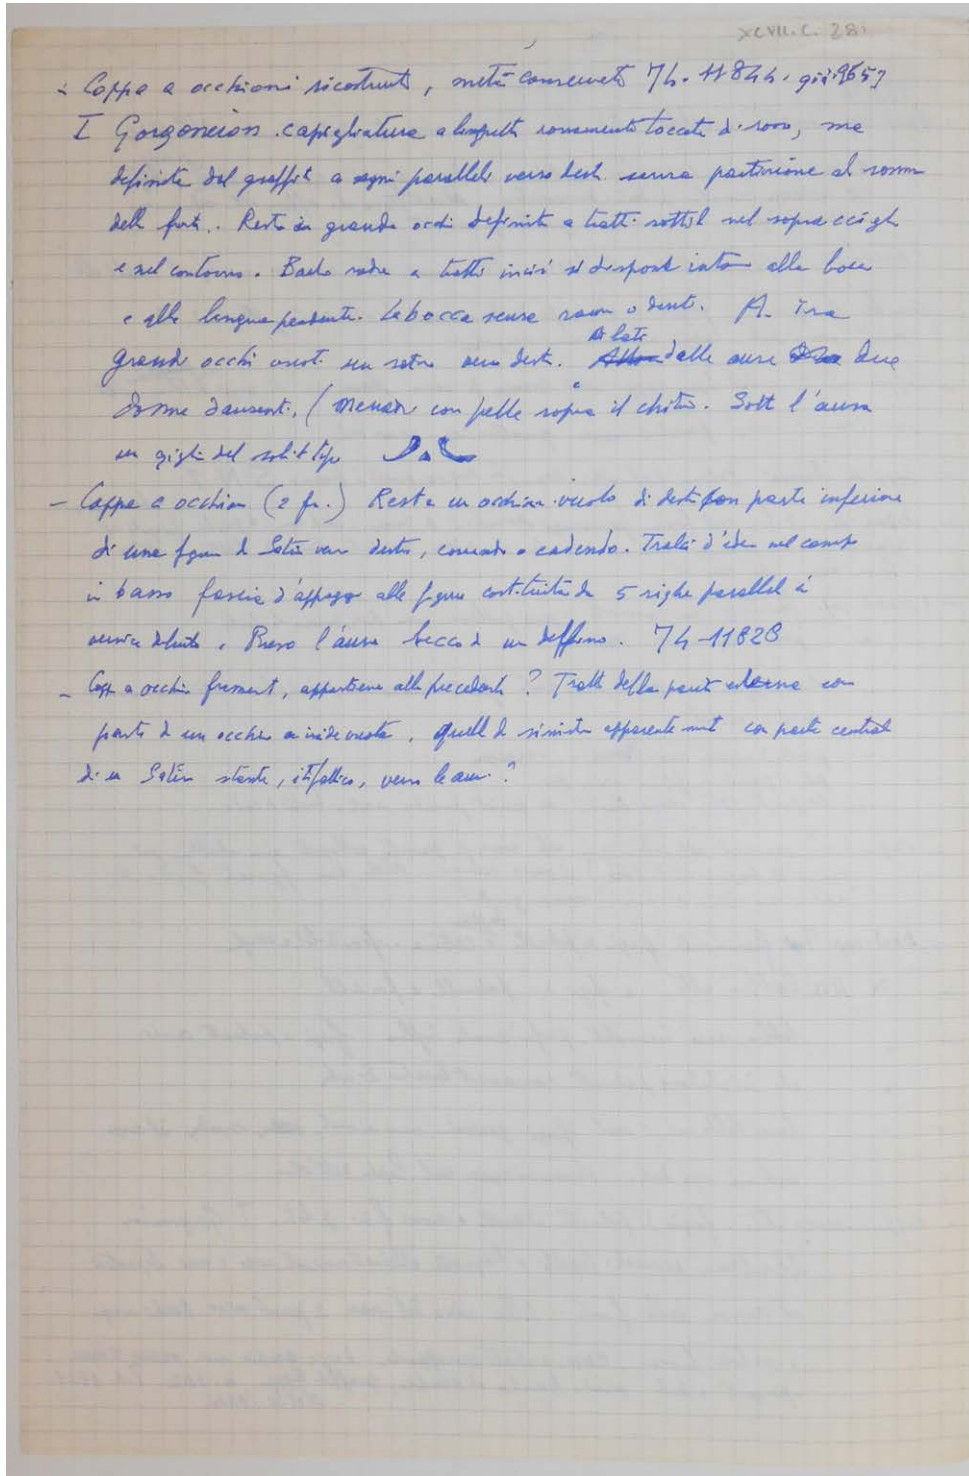 XCVII. C. 28.
- Coppa a occhioni ricostruita, metà conservata 74. 11844. già 9657
I Gorgoneion. capigliatura a linguette toccate di rosso, ma
definita dal graffito a segni paralleli verso destra senza partizione al sommo
della fronte. Resta un grande occhio definito a tratti sottili nel sopracciglio
e nel contorno. Barba rada a tratti incisi si dispone intorno alla bocca
e alla lingua pendente. La bocca senza o denti. A. Tra
grandi occhi vuoti un satiro verso destra. Ai lati dalle anse due
donne danzanti, (menadi con pelle sopra il chitone. Sotto l'ansa
un giglio del solito tipo
- Coppa a occhioni (2 fr.) Resta un occhione vuoto di destra con parte inferiore
di una figura di Satiro verso destra, correndo o cadendo. Tralci d'edera nel campo
in basso fascia d'appoggio alle figure costituita da 5 righe parallele a
vernice diluita. Presso l'ansa becco di un delfino. 74-11828
- Coppa a occhioni frammento, appartiene alla precedente? Tratto della parete esterna con
parte di un occhio a iride vuota, quello di sinistra apparentemente con parte centrale
di un Satiro stante, itifallico, verso le anse?